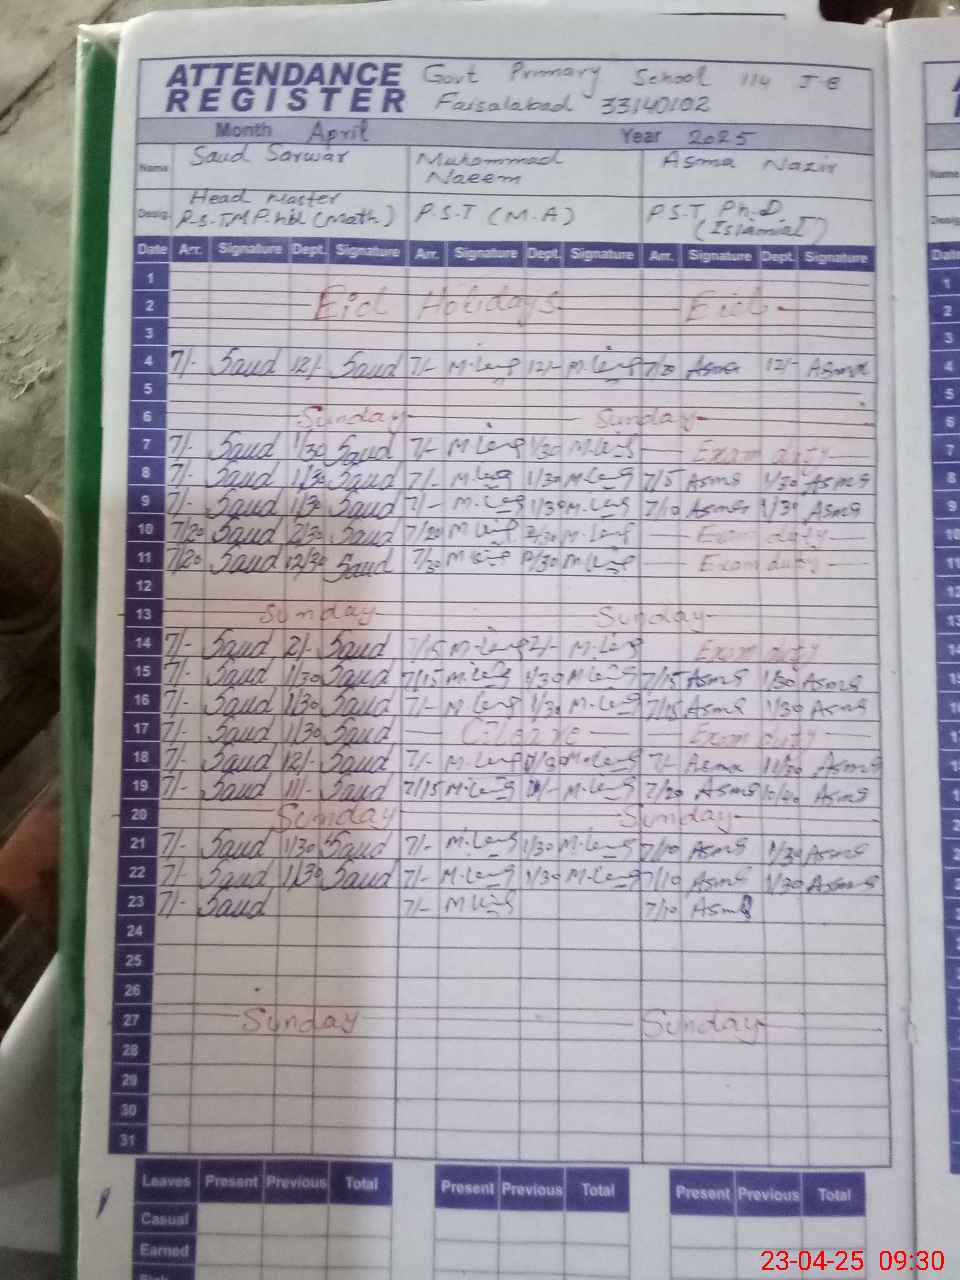 ATTENDANCE REGISTER Govt Primary School 114 J-B
Faisalabad 33140102
Month April Year 2025
Name Saud Sarwar Muhammad Naeem Asma Nazir
Desig. Head Master P.S.T M.Phil (Math) P.S.T (M.A) P.S.T Ph.D (Islamiat)
Date Arr. Signature Dept. Signature Arr. Signature Dept. Signature Arr. Signature Dept. Signature
1
2 Eid Holidays Eid
3
4 7/- Saud 12/- Saud 7/- 12/- 7/20 Asma 12/- Asma
5
6 Sunday Sunday
7 7/- Saud 1/30 Saud 7/- 1/30 Exam duty
8 7/- Saud 1/30 Saud 7/- 1/30 7/5 Asma 1/30 Asma
9 7/- Saud 1/30 Saud 7/- 1/30 7/10 Asma 1/30 Asma
10 7/20 Saud 2/30 Saud 7/20 2/30 Exam duty
11 7/20 Saud 12/30 Saud 7/20 12/30 Exam duty
12
13 Sunday Sunday
14 7/- Saud 2/- Saud 7/15 2/- Exam duty
15 7/- Saud 1/30 Saud 7/15 1/30 7/15 Asma 1/30 Asma
16 7/- Saud 1/30 Saud 7/- 1/30 7/15 Asma 1/30 Asma
17 7/- Saud 1/30 Saud Exam duty
18 7/- Saud 12/- Saud 7/- 7/- Asma 11/30 Asma
19 7/- Saud 11/- Saud 7/15 11/- 7/20 Asma 10/40 Asma
20 Sunday Sunday
21 7/- Saud 1/30 Saud 7/- 1/30 7/10 Asma 1/30 Asma
22 7/- Saud 1/30 Saud 7/- 1/30 7/10 Asma 1/30 Asma
23 7/- Saud 7/- 7/10 Asma
24
25
26
27 Sunday Sunday
28
29
30
31
Leaves Present Previous Total Present Previous Total Present Previous Total
Casual
Earned
23-04-25 09:30